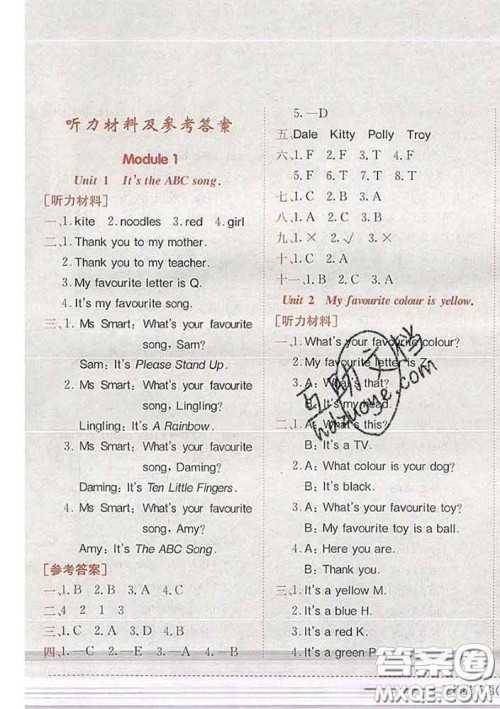 听力材料及参考答案
Module 1
Unit 1 It's the ABC song.
[听力材料]
一、1. kite 2. noodles 3. red 4. girl
二、1. Thank you to my mother.
2. Thank you to my teacher.
3. My favourite letter is Q.
4. It's my favourite song.
三、1. Ms Smart: What's your favourite
song, Sam?
Sam: It's Please Stand Up.
2. Ms Smart: What's your favourite
song, Lingling?
Lingling: It's A Rainbow.
3. Ms Smart: What's your favourite
song, Daming?
Daming: It's Ten Little Fingers.
4. Ms Smart: What's your favourite
song, Amy?
Amy: It's The ABC Song.
[参考答案]
一、1. B 2. B 3. A 4. B
二、4 2 1 3
三、1. C 2. A 3. D 4. B
四、1.—C 2.—E 3.—A 4.—B
5.—D
五、Dale Kitty Polly Troy
六、1. F 2. F 3. T 4. F 5. T
6. F 7. F 8. T 9. T
七、1. C 2. C 3. B
八、1. A 2. B 3. B 4. A
九、1. × 2. √ 3. ×
十、1. C 2. A 3. B
十一、1. C 2. A
Unit 2 My favourite colour is yellow.
[听力材料]
一、1. What's your favourite colour?
2. My favourite letter is Z.
3. A: What's that?
B: It's my head.
二、1. A: What's this?
B: It's a TV.
2. A: What colour is your dog?
B: It's black.
3. A: What's your favourite toy?
B: My favourite toy is a ball.
4. A: Here you are.
B: Thank you.
三、1. It's a yellow M.
2. It's a blue H.
3. It's a red K.
4. It's a green P.
互助文档
huzuoye.com
答案圈
MXQE.COM